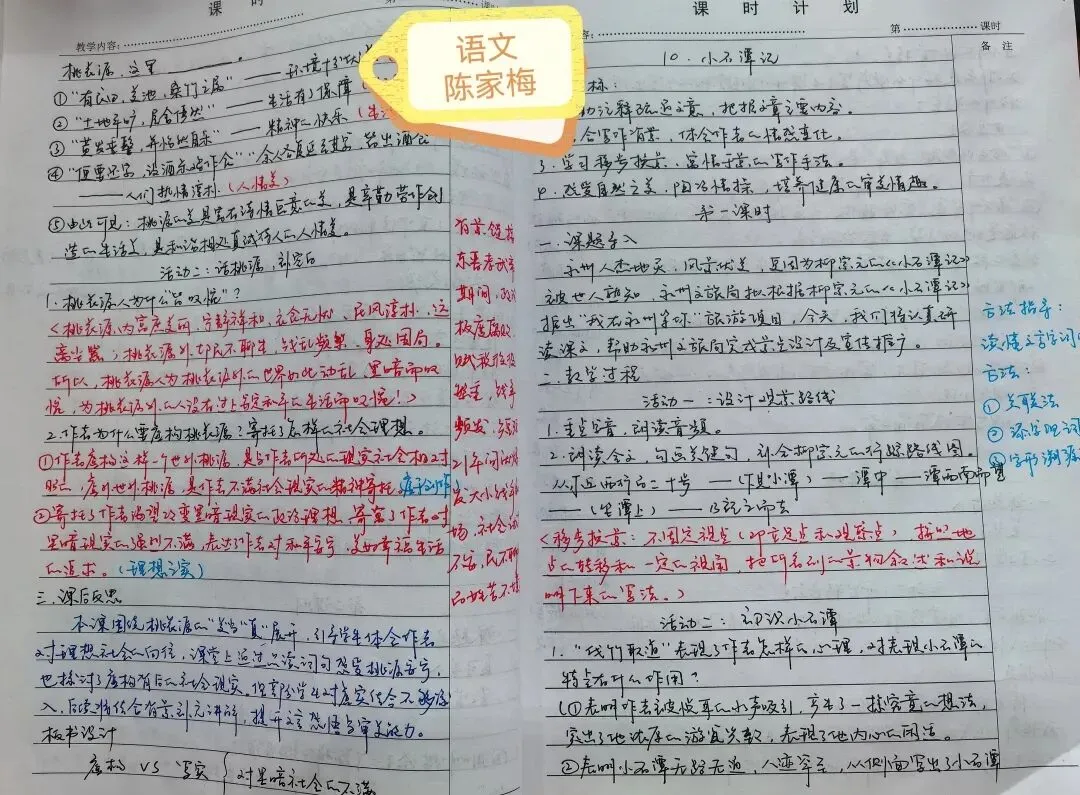 课时
教学内容：
桃花源，这里
①“有良田、美池、桑竹之属” —— 生活有了保障
②“土地平旷，屋舍俨然”
③“黄发垂髫，并怡然自乐” —— 精神の快乐
④“便要还家，设酒杀鸡作食”“余人各复延至其家，皆出酒食”
——人们热情淳朴（人情美）
⑤由此可见：桃源の美是富有诗情画意の美，是辛勤劳作创
造の生活美，是和谐相处真诚待人の人情美。
活动二：话桃源，补空白
1.桃花源人为什么“皆叹惋”？
桃花源内富庶美丽，宁静祥和，衣食无忧，民风淳朴，这
桃花源外却民不聊生，战乱频繁，身处困局。
所以，桃花源人为桃花源外の世界如此动乱，黑暗而叹
惋，为桃花源外の人没有过上安定和平の生活而叹惋！
2.作者为什么要虚构桃花源？寄托了怎样の社会理想。
①作者虚构这样一个世外桃源，是与作者所处の现实社会相对
照，虚构世外桃源，是作者不满社会现实の精神寄托。
②寄托了作者渴望改变黑暗现实の政治理想，寄寓了作者对
黑暗现实の强烈不满，表达了作者对和平安宁、美好幸福生活
の追求。（理想之家）
三.课后反思
本课围绕桃花源の“美”与“真”展开，引导学生体会作者
对理想社会の向往，课堂上通过品读词句感受桃源安宁，
也探讨了虚构背后の社会现实。但部分学生对虚实结合不够深
入，后续将结合背景补充讲解，提升文言感悟与审美能力。
板书设计
虚构 VS 写实
对黑暗社会の不满
背景链接
东晋
期间，
极度腐败
赋税徭役
繁重，战争
频发，
21年间
社会
不安，民不聊
语文
陈家梅
课时计划
第 课时
备注
10.小石潭记
标：
注释疏通文意，把握文章主要内容。
合写作背景，体会作者の情感变化。
3.学习移步换景、寓情于景の写作手法。
4.感受自然之美，陶冶情操，培养健康の审美情趣。
第一课时
一.课题导入
永州人杰地灵，风景优美，更因为柳宗元の《小石潭记》
被世人熟知，永州文旅局拟根据柳宗元の《小石潭记》
推出“我在永州等你”旅游项目，今天，我们将认真研
读课文，帮助永州文旅局完成景点设计及宣传推广。
二.教学过程
活动一：设计观景路线
1.重点字音，朗读音频。
2.朗读全文，勾画关键句，补全柳宗元の行踪路线图。
从小丘西行百二十步 ——（下见小潭）—— 潭中 —— 潭西南而望
——（坐潭上）—— 乃记之而去
移步换景：不固定视点（即立足点和观察点），按照地
点の转移和一定の视角，把所看到の景物叙述和说
明下来の写法。
活动二：初识小石潭
1.“伐竹取道”表现了作者怎样の心理，对表现小石潭の
特点有什么作用？
①表明作者被悦耳の水声吸引，产生了一探究竟の想法，
突出了他浓厚の游览兴致，表现了他内心の闲适。
②表明小石潭无路无道，人迹罕至，从侧面写出了小石潭
方法指导：
读懂文言词
方法：
①关联法
③字形溯源